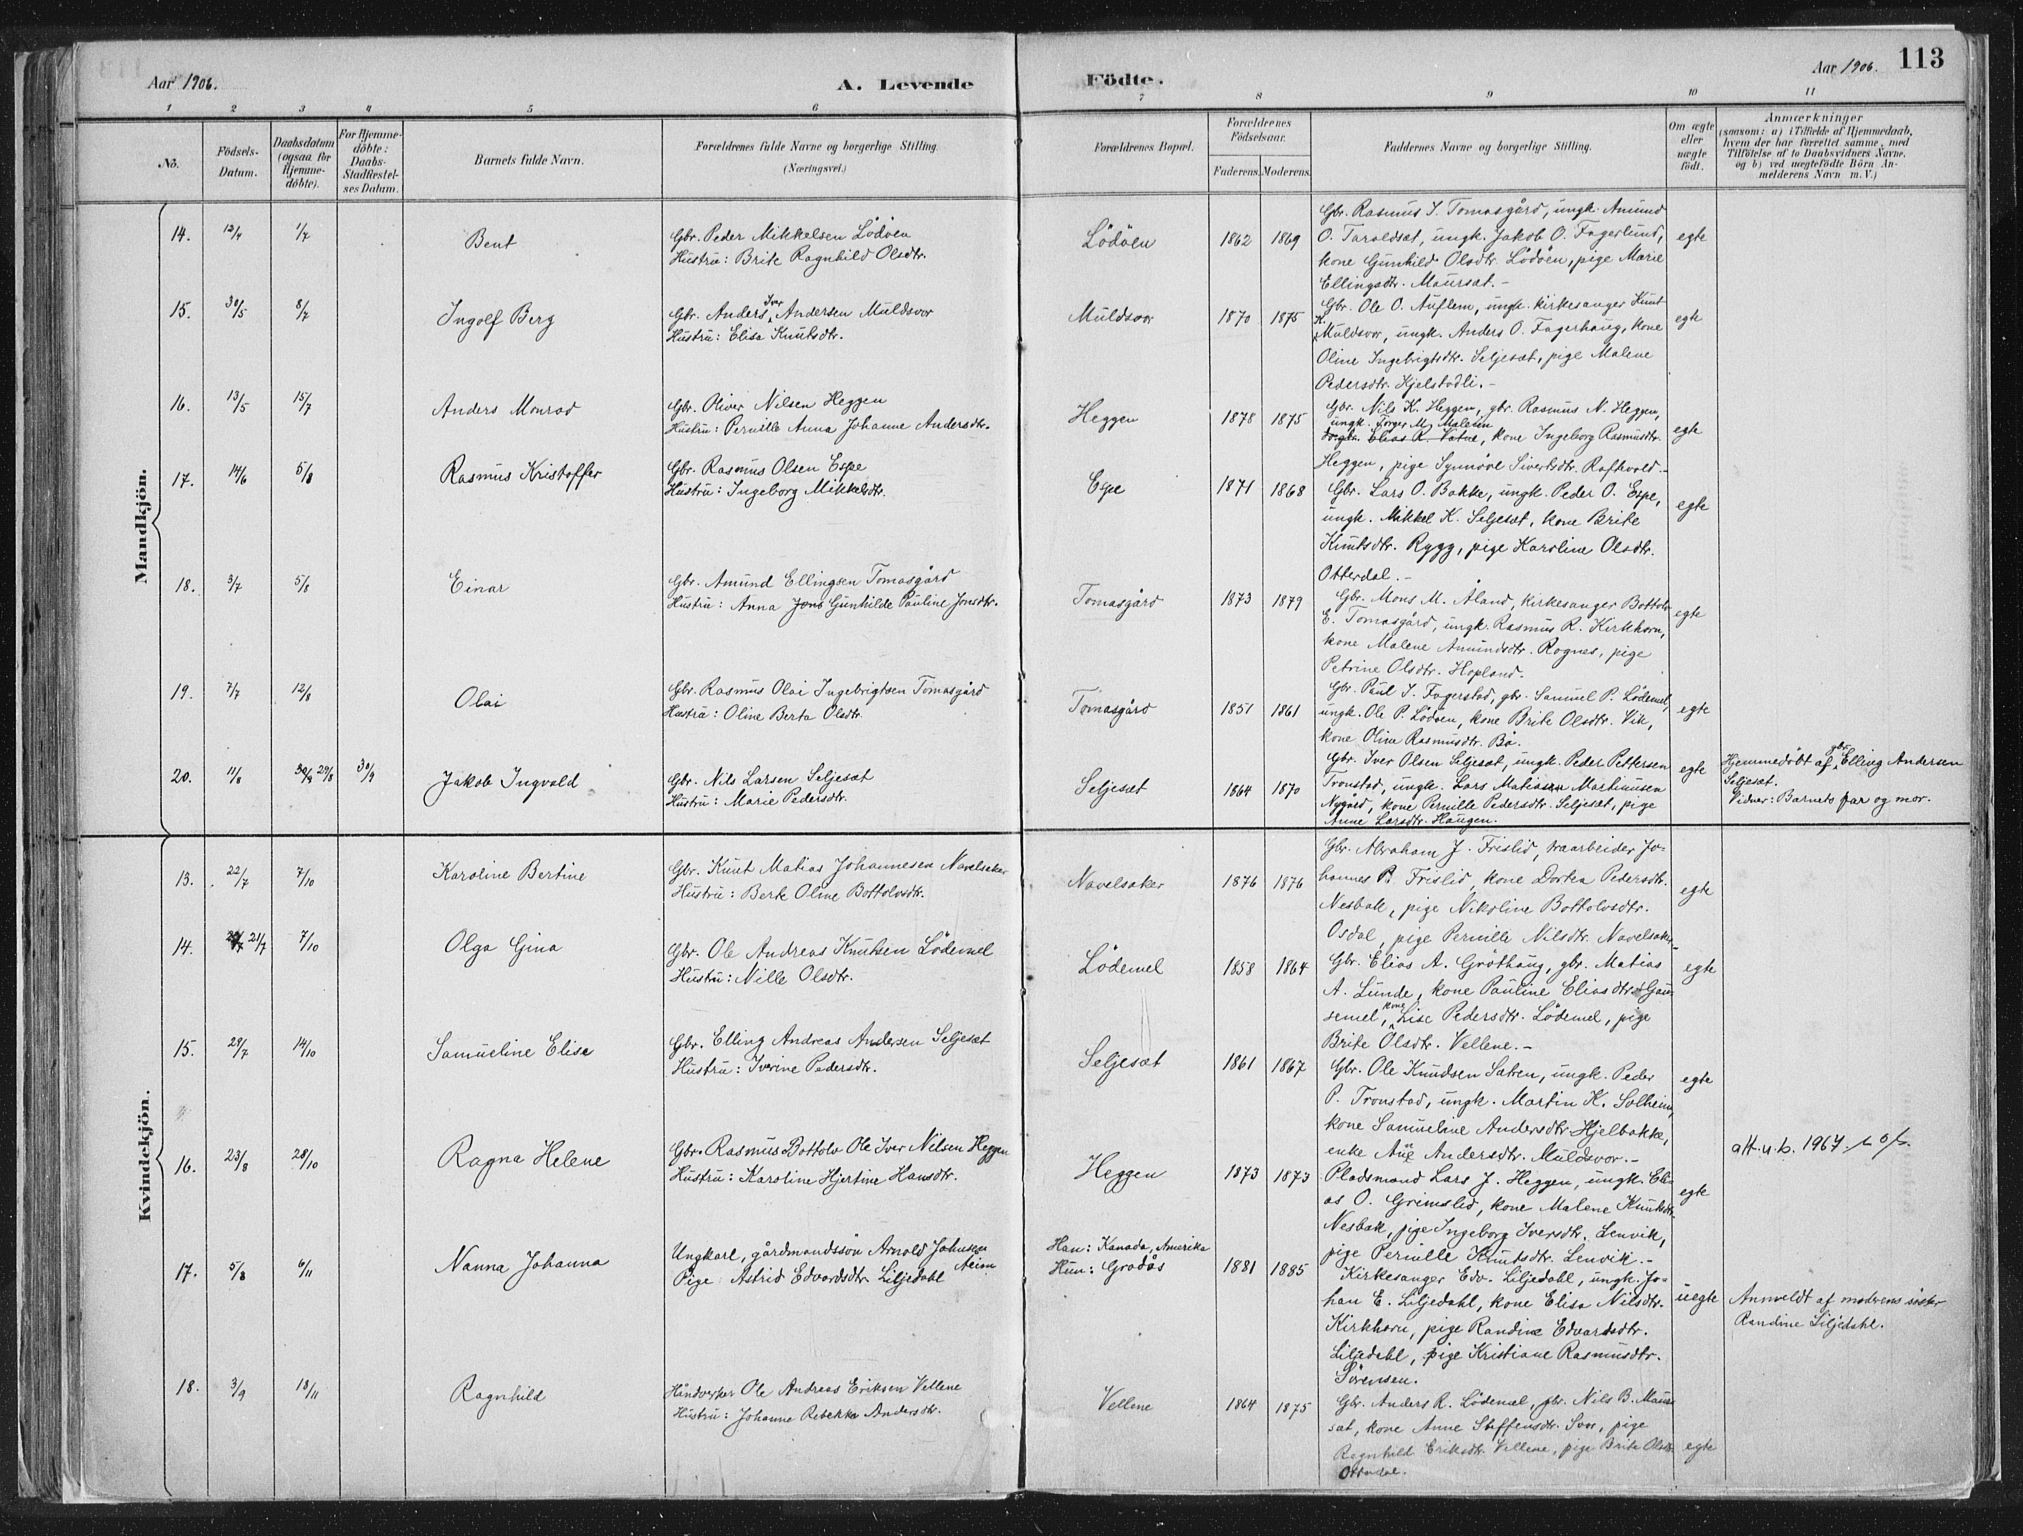 Aar 1906.
A. Levende
Födte.
Aar 1906.
113
1 2 3 4 5 6 7 8 9 10 11
No.
Födsels-Datum.
Daabsdatum (ogsaa for Hjemme-döbte).
For Hjemme-döbte: Daabs-Stadfæstel-ses Datum.
Barnets fulde Navn.
Forældrenes fulde Navne og borgerlige Stilling.
(Næringsvei.)
Forældrenes Bopæl.
Forældrenes Födselsaar.
Faderens. Moderens.
Faddernes Navne og borgerlige Stilling.
Om ægte eller uægte födt.
Anmærkninger
(saasom: a) i Tilfælde af Hjemmedaab, hvem der har forrettet samme, med Tilföielse af to Daabsvidners Navne, og b) ved uægtefödte Börn An-melderens Navn m. V.)
Mandkjön.
14. 12/4 1/7 Bent
Gbr. Peder Mikkelsen Lödöen
Hustru: Brite Ragnhild Olsdtr.
Lödöen 1862 1869
Gbr. Rasmus I. Tomasgård, ungk. Amund
O. Taraldset, ungk. Jakob O. Fagerlund,
kone Gunhild Olsdtr. Lödöen, pige Marie
Ellingsdtr. Maurset.-
egte
15. 30/5 8/7 Ingolf Berg
Gbr. Anders Iver Andersen Muldsvor
Hustru: Elisa Knutsdtr.
Muldsvor 1870 1875
Gbr. Ole O. Auflem, ungk. kirkesanger Knut
K. Muldsvor, ungk. Anders O. Fagerhaug, kone
Oline Ingebrigtsdtr. Seljeset, pige Malene
Pedersdtr. Kjelstadli.-
egte
16. 13/5 15/7 Anders Monrad
Gbr. Oliver Nilsen Heggen
Hustru: Pernille Anna Johanne Andersdtr.
Heggen 1878 1875
Gbr. Nils K. Heggen, gbr. Rasmus N. Heggen,
ungk. Torger M. Maleien
Elias R. Vatne, kone Ingeborg Rasmusdtr.
Heggen, pige Synnöve Sivertsdtr. Raftvold.-
egte
17. 14/6 5/8 Rasmus Kristoffer
Gbr. Rasmus Olsen Espe
Hustru: Ingeborg Mikkelsdtr.
Espe 1871 1868
Gbr. Lars O. Bakke, ungk. Peder O. Espe,
ungk. Mikkel K. Seljeset, kone Brite
Knutsdtr. Rygg, pige Karoline Olsdtr.
Otterdal.-
egte
18. 3/7 5/8 Einar
Gbr. Amund Ellingsen Tomasgård
Hustru: Anna Jons Gunhilde Pauline Jonsdtr.
Tomasgård 1873 1879
Gbr. Mons M. Åland, kirkesanger Bottolv
E. Tomasgård, ungk. Rasmus R. Kirkhorn,
kone Malene Amundsdtr. Rognes, pige
Petrine Olsdtr. Hopland.
egte
19. 7/7 12/8 Olai
Gbr. Rasmus Olai Ingebrigtsen Tomasgård
Hustru: Oline Berta Olsdtr.
Tomasgård 1851 1861
Gbr. Paul I. Fagerstad, gbr. Samuel P. Lödemel,
ungk. Ole P. Lödöen, kone Brite Olsdtr. Vik,
kone Oline Rasmusdtr. Bö.
egte
20. 11/8 30/9 29/8 30/9 Jakob Ingvald
Gbr. Nils Larsen Seljeset
Hustru: Marie Pedersdtr.
Seljeset 1864 1870
Gbr. Iver Olsen Seljeset, ungk. Peder Pettersen
Tronstad, ungk. Lars Matiasen Martinusen
Nygård, kone Pernille Pedersdtr. Seljeset, pige
Anne Larsdtr. Haugen.
egte
Hjemmedöbt af gbr. Elling Andersen
Seljeset.
Vidner: Barnets far og mor.
Kvindekjön.
13. 22/7 7/10 Karoline Bertine
Gbr. Knut Matias Johannesen Navelsaker
Hustru: Berte Oline Bottolvsdtr.
Navelsaker 1876 1876
Gbr. Abraham J. Frislid, vaarbeider Jo-
hannes B. Frislid, kone Dortea Pedersdtr.
Nesbak, pige Nikoline Bottolvsdtr.
Osdal, pige Pernille Nilsdtr. Navelsaker.
egte
14. 21/7 7/10 Olga Gina
Gbr. Ole Andreas Knutsen Lödemel
Hustru: Nille Olsdtr.
Lödemel 1858 1864
Gbr. Elias A. Gröthaug, gbr. Matias
A. Lunde, kone Pauline Eliasdtr. Gau-
semel, kone Lise Pedersdtr. Lödemel, pige
Brite Olsdtr. Vellene.-
egte
15. 29/7 14/10 Samueline Elise
Gbr. Elling Andreas Andersen Seljeset
Hustru: Iverine Pedersdtr.
Seljeset 1861 1867
Gbr. Ole Knudsen Satren, ungk. Peder
P. Tronstad, ungk. Martin K. Solheim,
kone Samueline Andersdtr. Hjelbakke,
enke Andersdtr. Muldsvor.-
egte
16. 23/8 28/10 Ragna Helene
Gbr. Rasmus Bottolv Ole Iver Nilsen Heggen
Hustru: Karoline Hjertine Hansdtr.
Heggen 1873 1873
Pladsmand Lars J. Heggen, ungk. Eli-
as O. Grimslid, kone Malene Knutsdtr.
Nesbak, pige Ingeborg Iversdtr. Lenvik,
pige Pernille Knutsdtr. Lenvik.-
egte
att. u.b. 1967
17. 5/8 6/11 Nanna Johanna
Ungkarl, gårdmandssön Arnold Johnsen Aeim
Pige Astrid Edvardsdtr. Liljedahl
Han: Kanada, Amerika
Hun: Grodås
1881 1885
Kirkesanger Edv. Liljedahl, ungk. Jo-
han E. Liljedahl, kone Elisa Nilsdtr.
Kirkhorn, pige Randine Edvardsdtr.
Liljedahl, pige Kristiane Rasmusdtr.
Sörensen.
uegte
Anmeldt af moderens söster
Randine Liljedahl.
18. 3/9 18/11 Ragnhild
Håndverker Ole Andreas Eriksen Vellene
Hustru: Johanne Rebekka Andersdtr.
Vellene 1864 1875
Gbr. Anders R. Lödemel, gbr. Nils B. Maur-
set, kone Anne Steffensdtr. pige
Ragnhild Eriksdtr. Vellene, pige Brite Olsdtr.
Otterdal.
egte